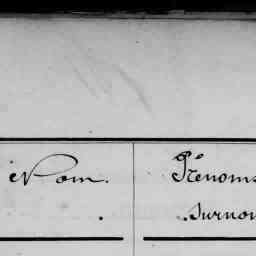 Nom.
Prénoms
surnom